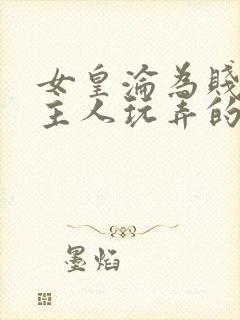 女皇淪為賤
主人玩弄的
墨焰